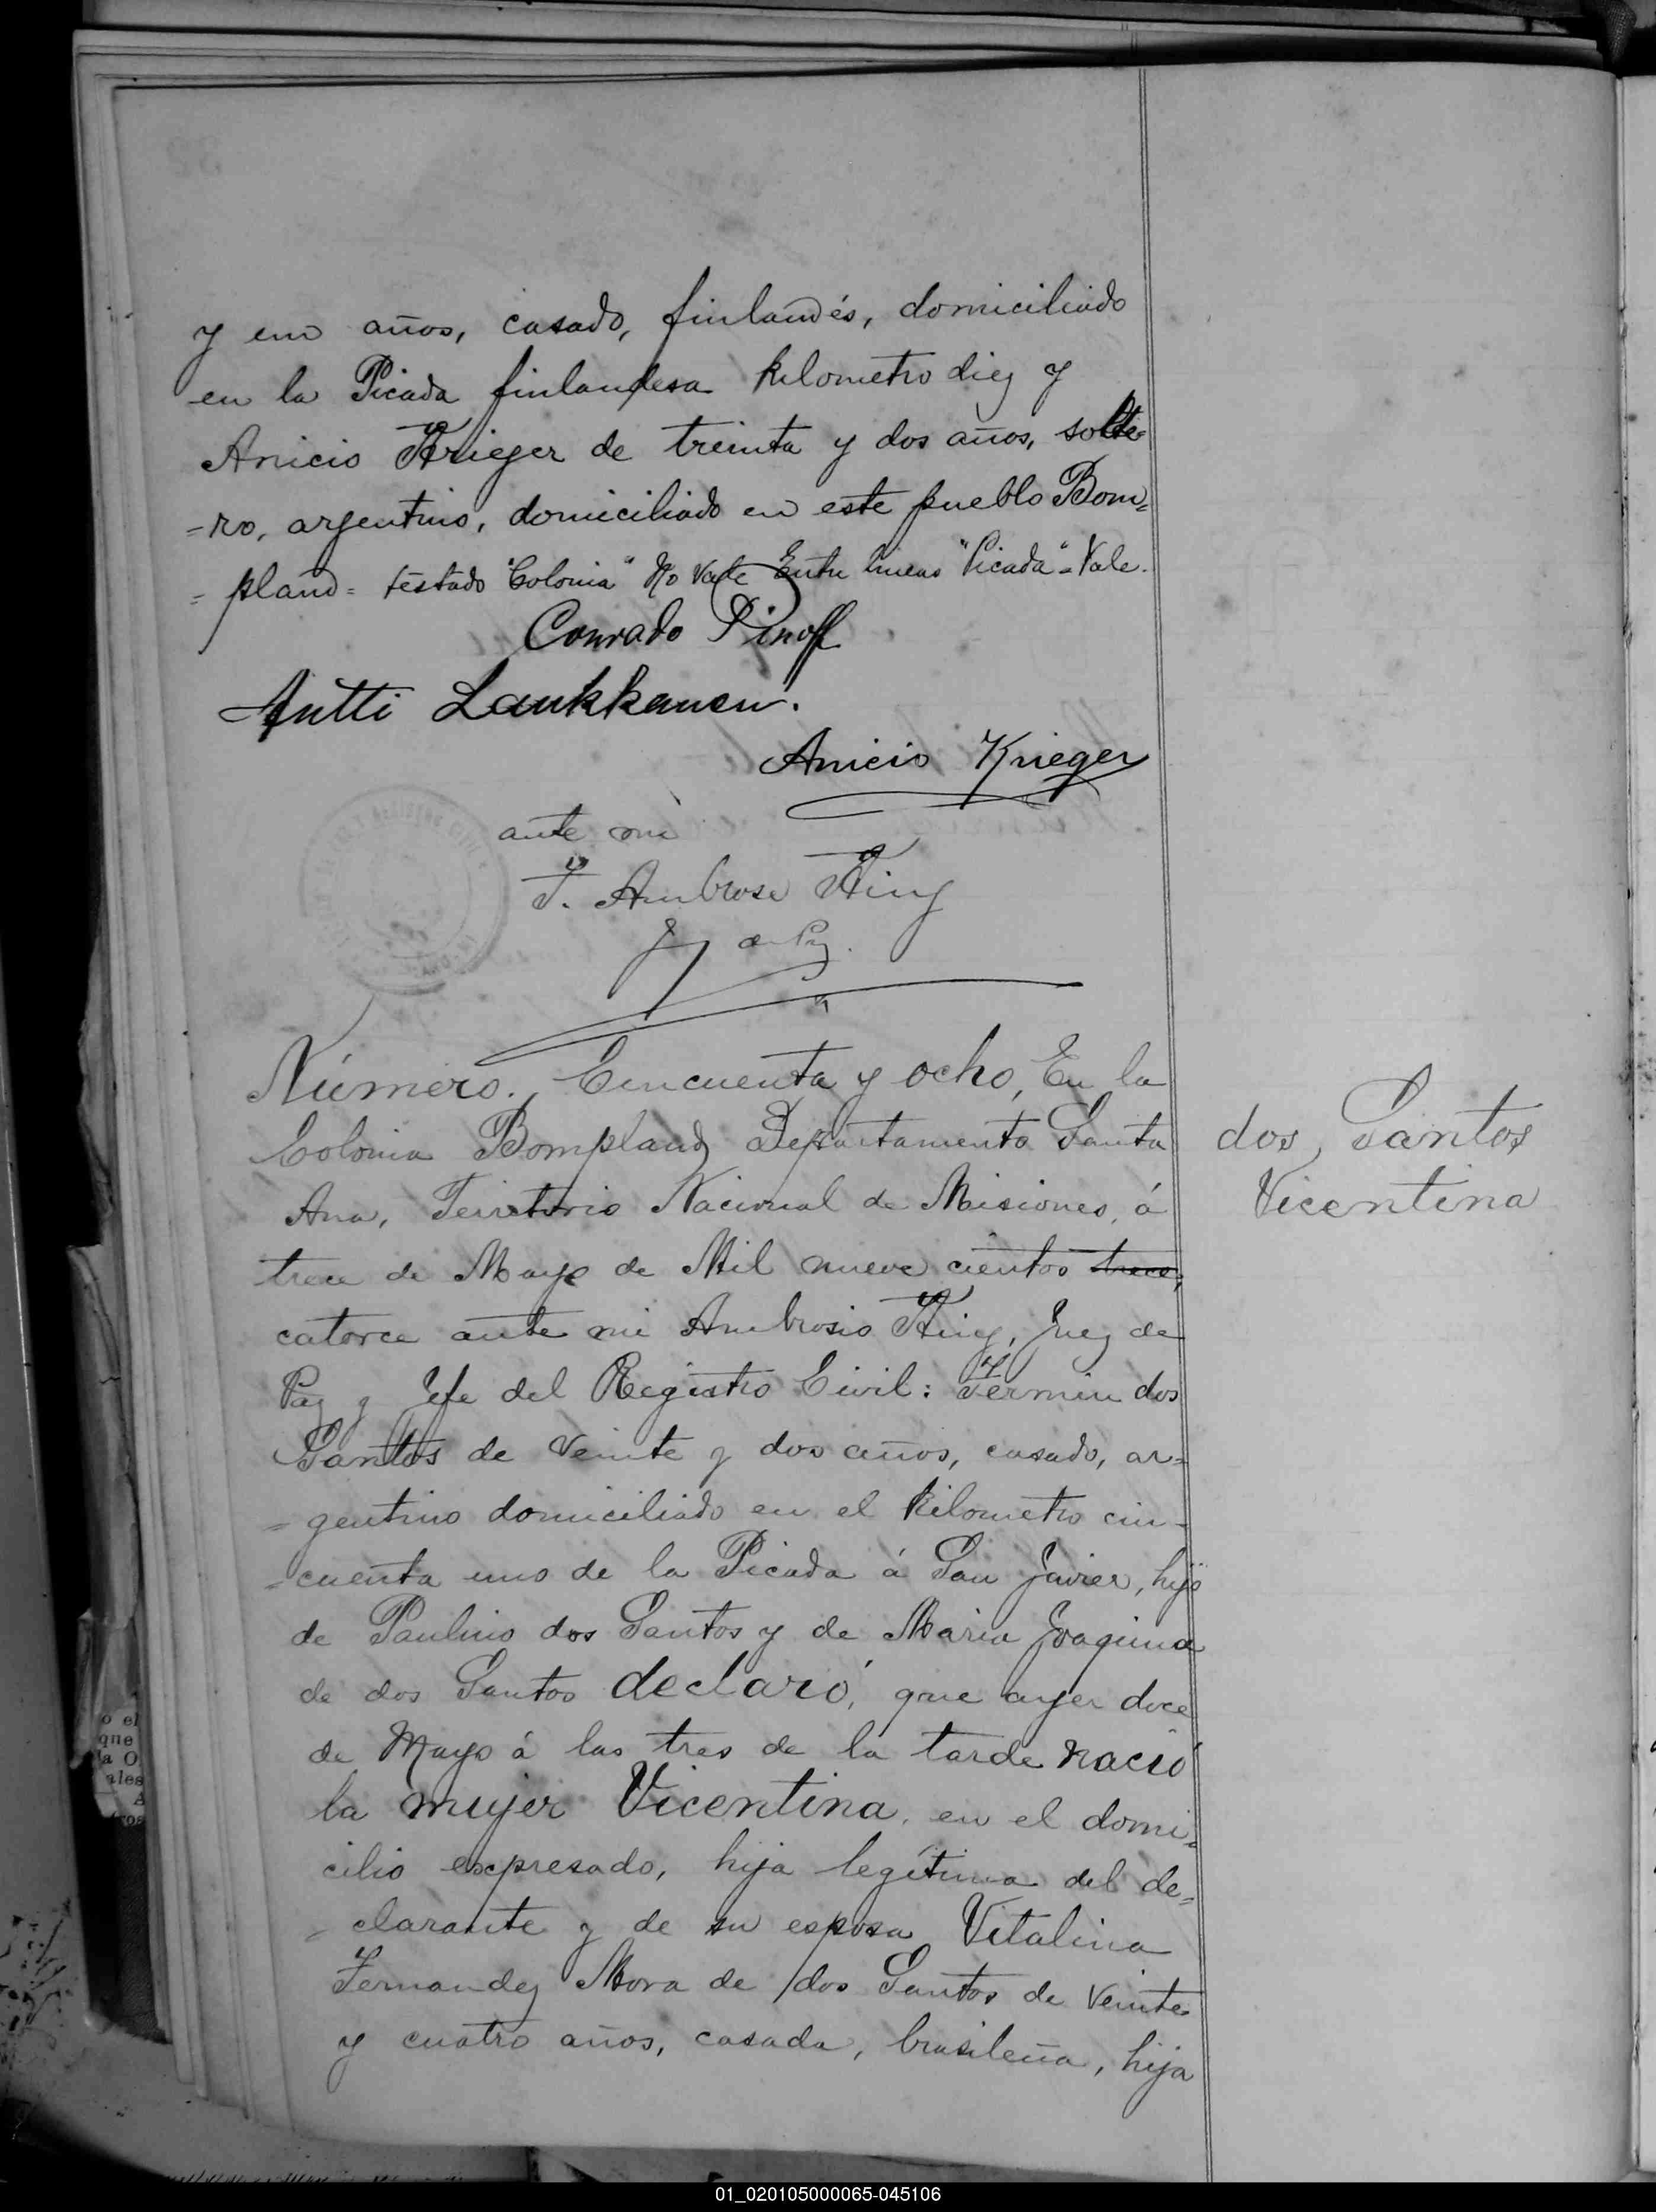 y un años, casado, finlandés, domiciliado
en la Picada finlandesa kilometro diez y
Anicio Krieger de treinta y dos años, solte=
=ro, argentino, domiciliado en este pueblo Bom=
=pland= testado "Colonia" No Vale Entre lineas "Picada"=Vale.
Conrado Pinoff
Antti Laukkanen.
Anicio Krieger
ante mi
T. Ambrose King
J de Paz.
REGISTRO CIVIL
Número. Cincuenta y ocho, En la
Colonia Bompland Departamento Santa
Ana, Territorio Nacional de Misiones, á
trece de Mayo de Mil nueve cientos trece,
catorce ante mi Ambrosio King, Juez de
Paz y Jefe del Registro Civil: Fermin dos
Santos de Veinte y dos años, casado, ar=
=gentino domiciliado en el kilometro cin-
=cuenta uno de la Picada á San Javier, hijo
de Paulino dos Santos y de Maria Joaquina
de dos Santos declaró, que ayer doce
de Mayo á las tres de la tarde nació
la mujer Vicentina, en el domi=
cilio expresado, hija legítima del de=
-clarante y de su esposa Vitalina
Fernandez Mora de dos Santos de Veinte
y cuatro años, casada, brasileña, hija
dos Santos
Vicentina
o el
que
a O
ales
A
tros
01_020105000065-045106